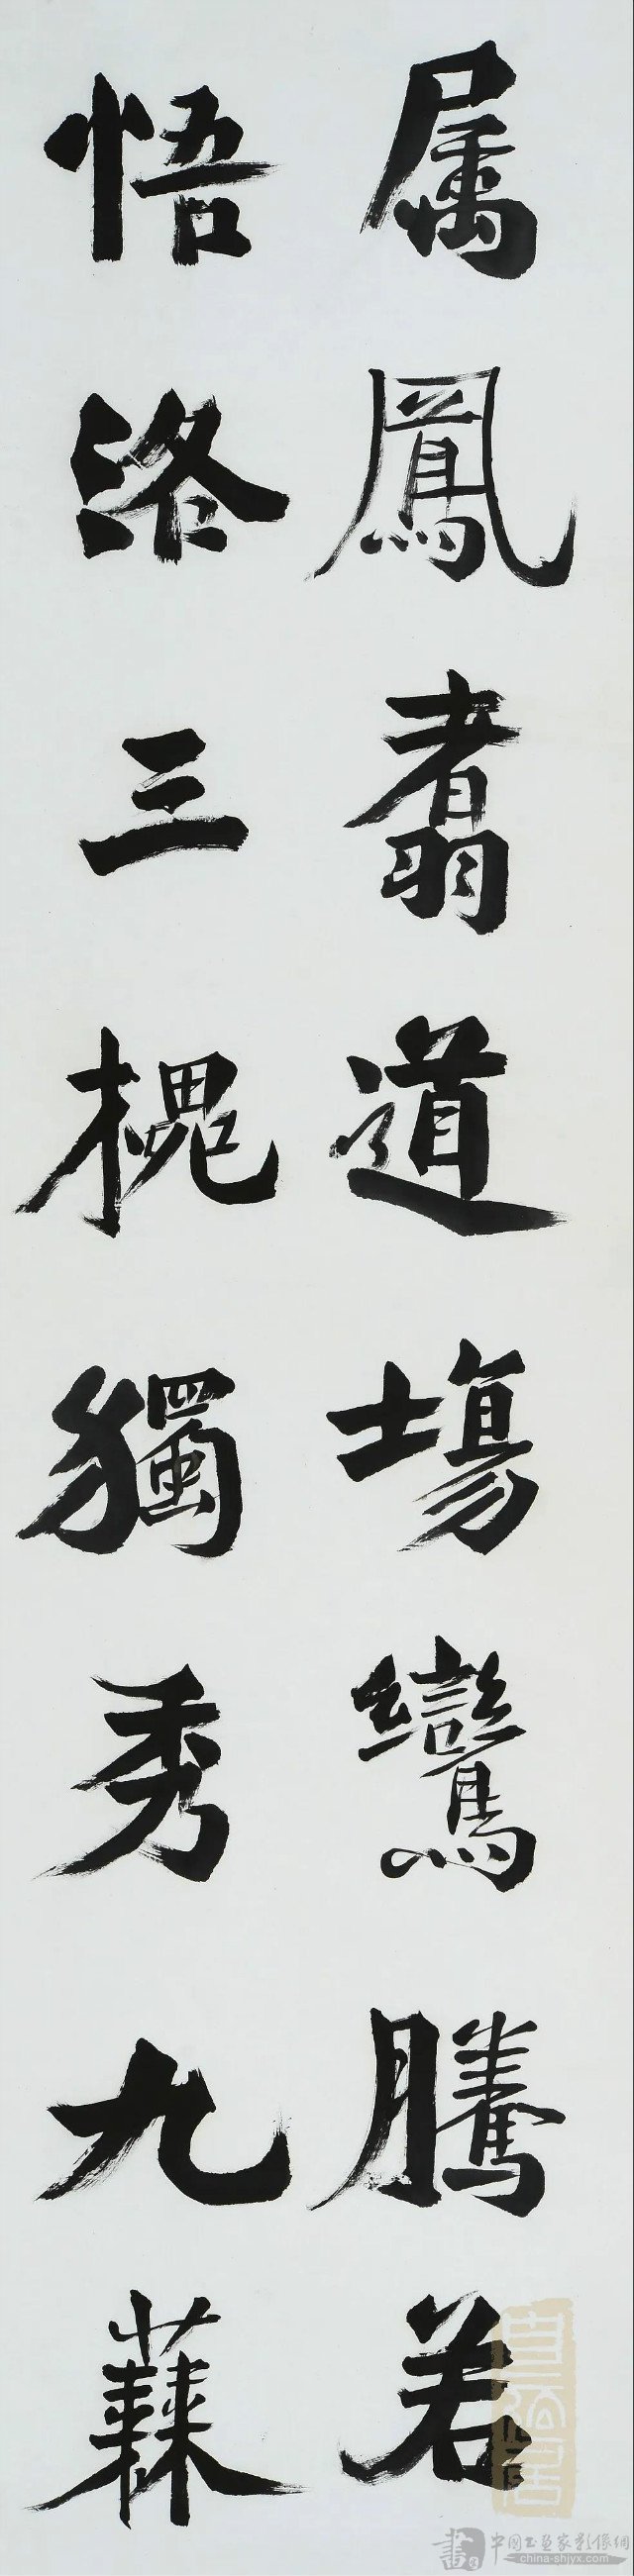 属鳳翥道場鸞騰若
悟洛三槐獨秀九蘇
中國書畫家影像網
china-shjyx.com